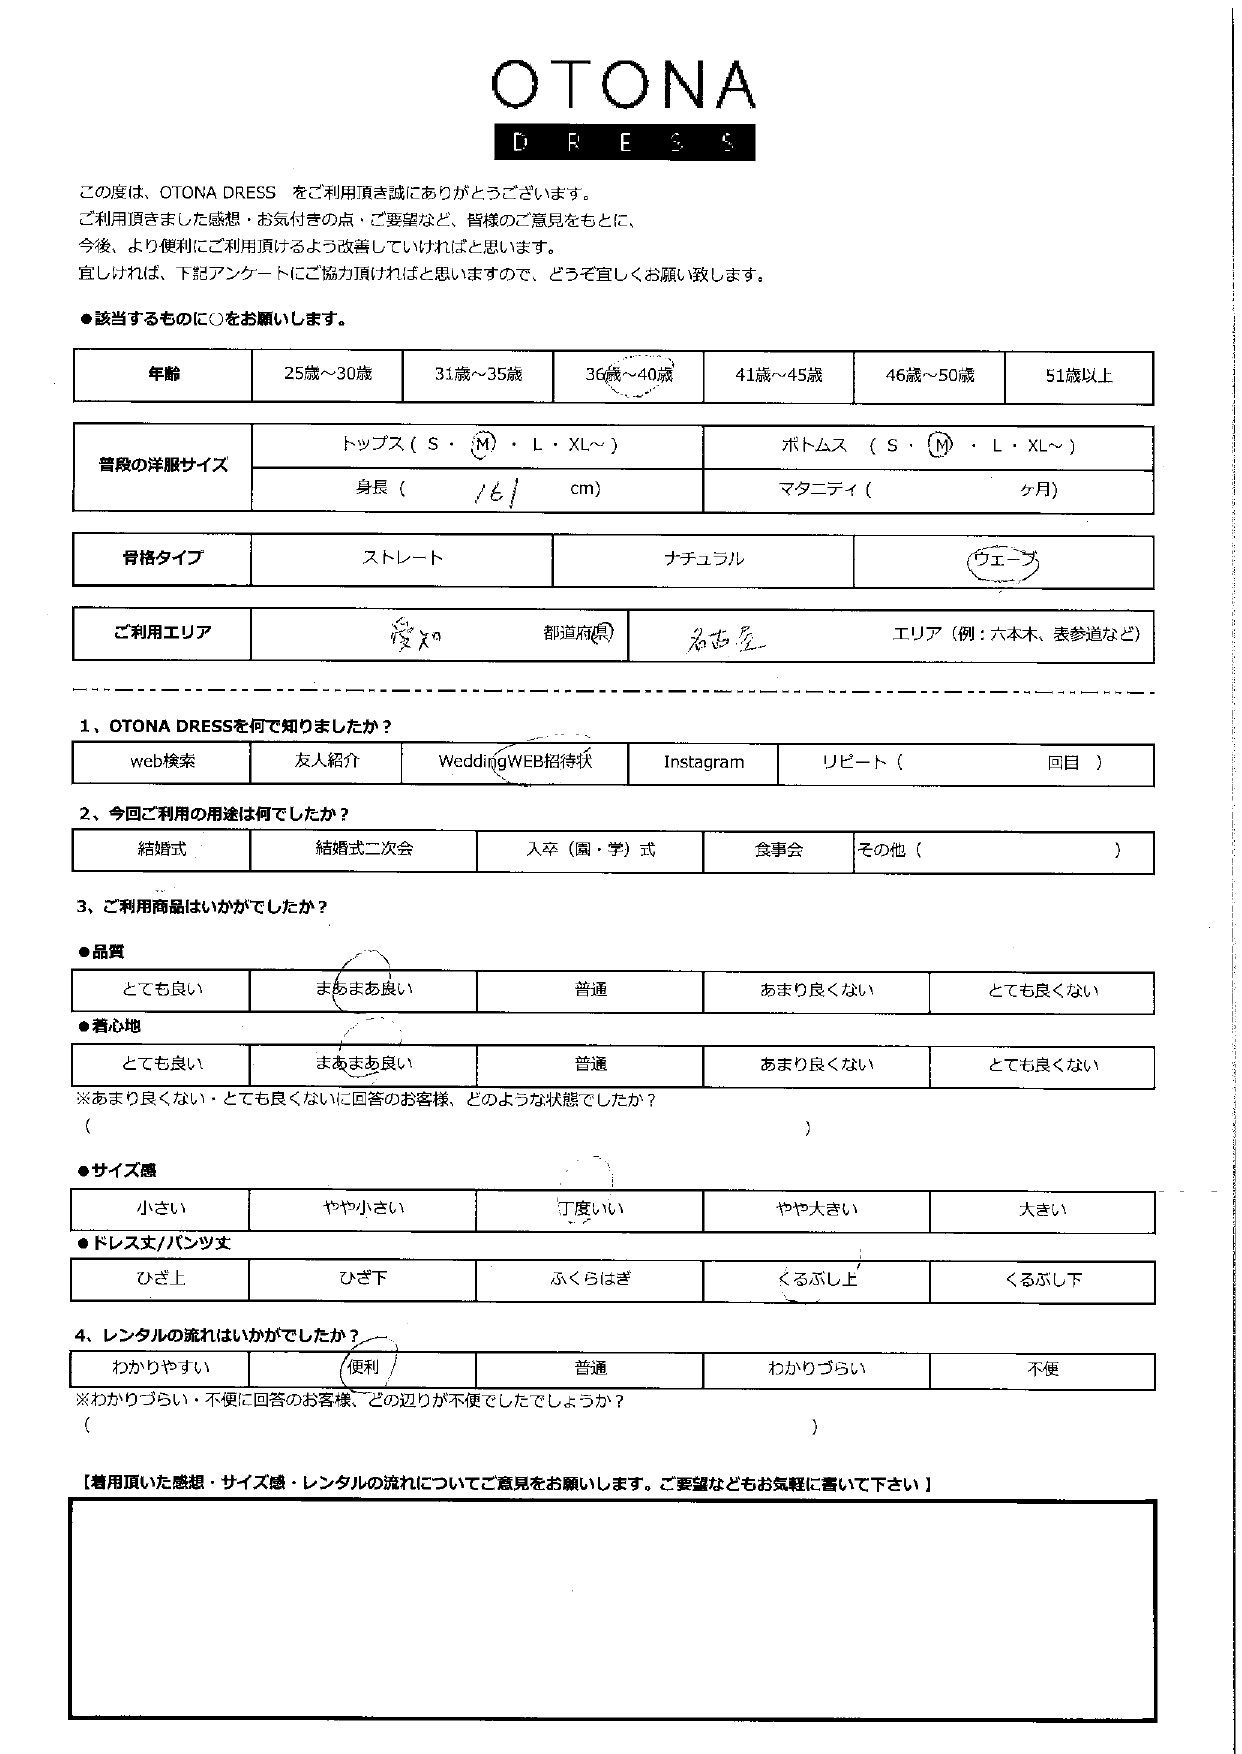 OTONA
DRESS
この度は、OTONA DRESS　をご利用頂き誠にありがとうございます。
ご利用頂きました感想・お気付きの点・ご要望など、皆様のご意見をもとに、
今後、より便利にご利用頂けるよう改善していければと思います。
宜しければ、下記アンケートにご協力頂ければと思いますので、どうぞ宜しくお願い致します。
●該当するものに○をお願いします。
年齢 25歳～30歳 31歳～35歳 36歳～40歳 41歳～45歳 46歳～50歳 51歳以上
普段の洋服サイズ
トップス ( S ・ M ・ L ・ XL～ ) ボトムス ( S ・ M ・ L ・ XL～ )
身長 ( 161 cm) マタニティ ( ヶ月)
骨格タイプ ストレート ナチュラル ウェーブ
ご利用エリア 愛知 都道府県 名古屋 エリア（例：六本木、表参道など）
1、OTONA DRESSを何で知りましたか？
web検索 友人紹介 WeddingWEB招待状 Instagram リピート（ 回目 ）
2、今回ご利用の用途は何でしたか？
結婚式 結婚式二次会 入卒（園・学）式 食事会 その他（ ）
3、ご利用商品はいかがでしたか？
●品質
とても良い まあまあ良い 普通 あまり良くない とても良くない
●着心地
とても良い まあまあ良い 普通 あまり良くない とても良くない
※あまり良くない・とても良くないに回答のお客様、どのような状態でしたか？
( )
●サイズ感
小さい やや小さい 丁度いい やや大きい 大きい
●ドレス丈/パンツ丈
ひざ上 ひざ下 ふくらはぎ くるぶし上 くるぶし下
4、レンタルの流れはいかがでしたか？
わかりやすい 便利 普通 わかりづらい 不便
※わかりづらい・不便に回答のお客様、どの辺りが不便でしたでしょうか？
( )
【着用頂いた感想・サイズ感・レンタルの流れについてご意見をお願いします。ご要望などもお気軽に書いて下さい 】